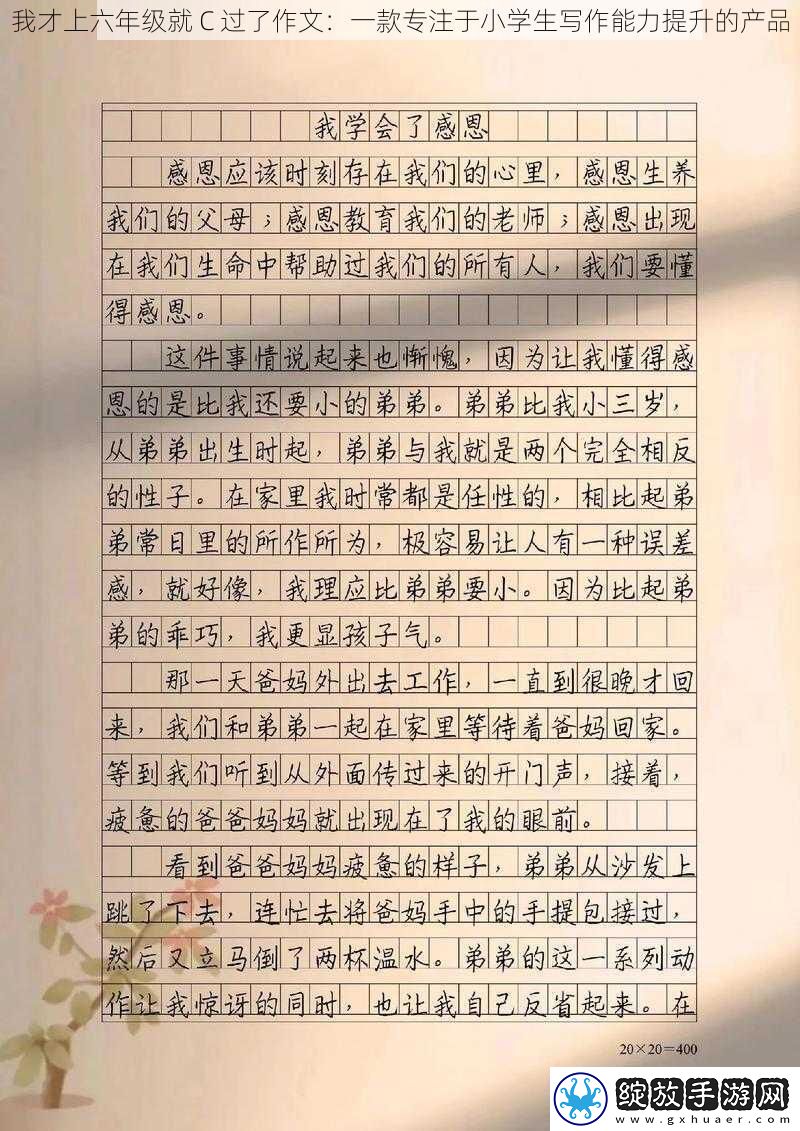 我才上六年级就 C 过了作文：一款专注于小学生写作能力提升的产品
我学会了感恩
感恩应该时刻存在我们的心里，感恩生养
我们的父母；感恩教育我们的老师；感恩出现
在我们生命中帮助过我们的所有人，我们要懂
得感恩。
这件事情说起来也惭愧，因为让我懂得感
恩的是比我还要小的弟弟。弟弟比我小三岁，
从弟弟出生时起，弟弟与我就是两个完全相反
的性子。在家里我时常都是任性的，相比起弟
弟常日里的所作所为，极容易让人有一种误差
感，就好像，我理应比弟弟要小。因为比起弟
弟的乖巧，我更显孩子气。
那一天爸妈外出去工作，一直到很晚才回
来，我们和弟弟一起在家里等待着爸妈回家。
等到我们听到从外面传过来的开门声，接着，
疲惫的爸爸妈妈就出现在了我的眼前。
看到爸爸妈妈疲惫的样子，弟弟从沙发上
跳了下去，连忙去将爸妈手中的手提包接过，
然后又立马倒了两杯温水。弟弟的这一系列动
作让我惊讶的同时，也让我自己反省起来。在
20×20=400
绽放手游网
www.gxhuaer.com